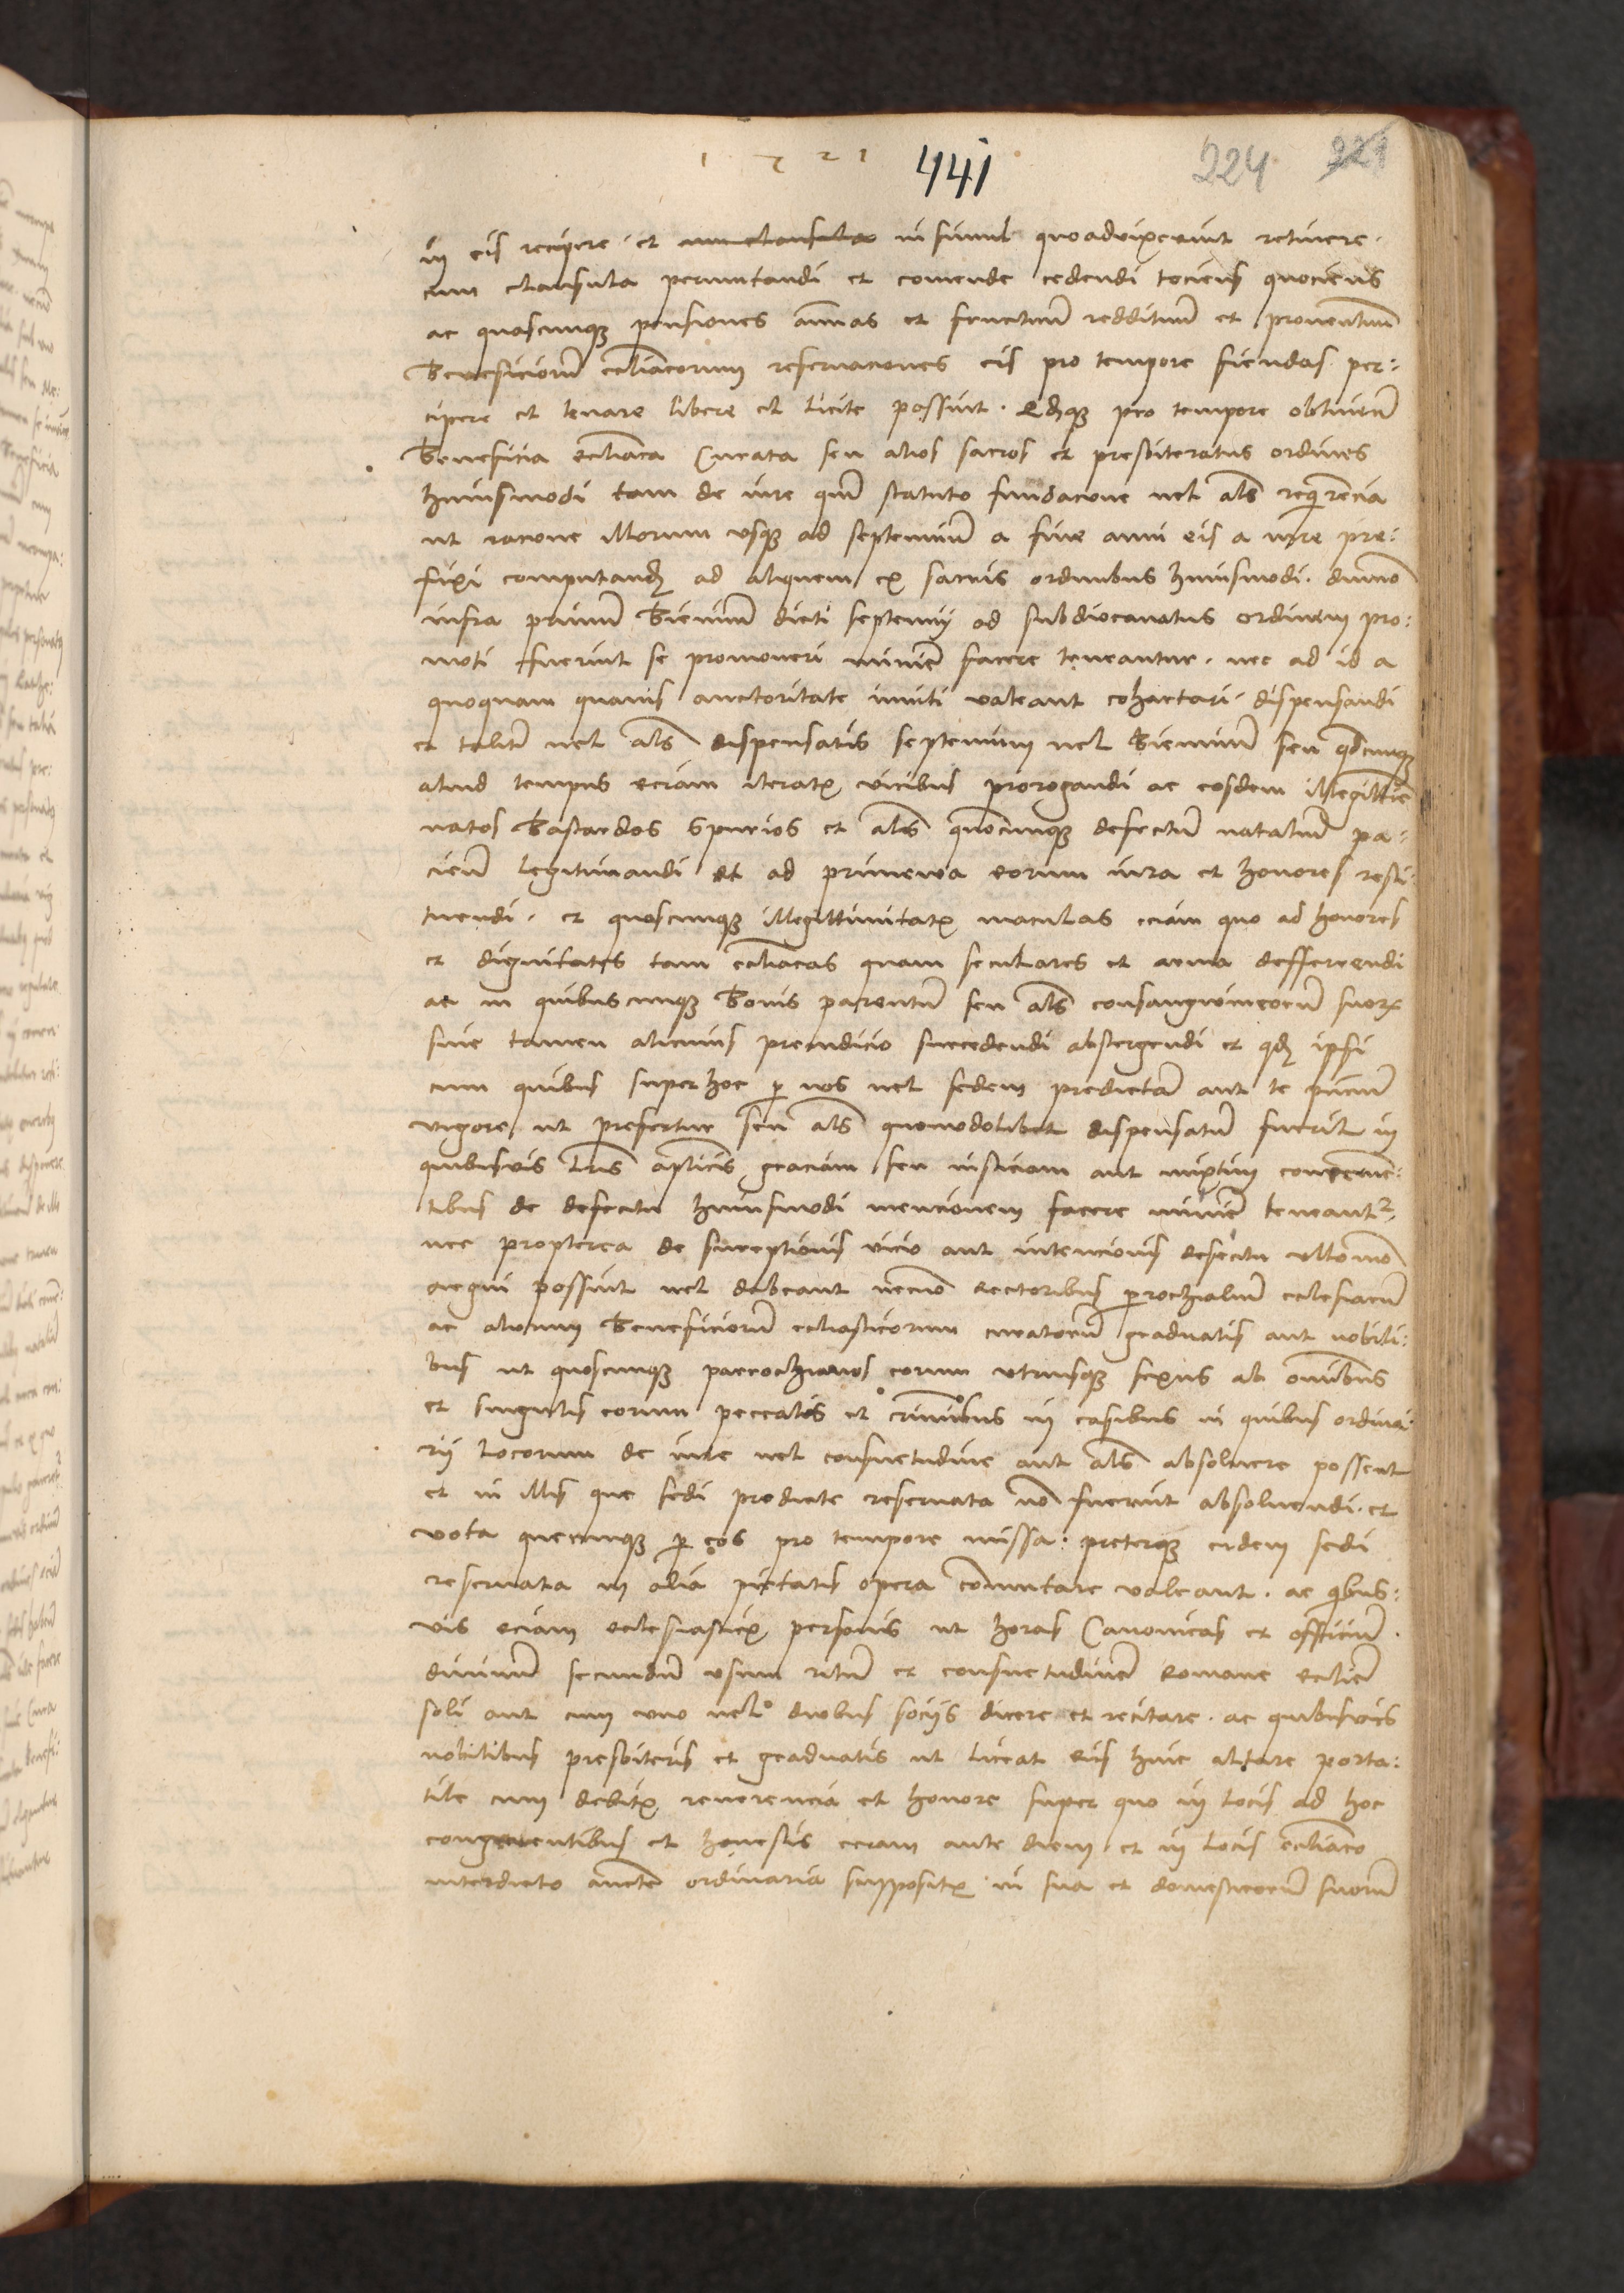 1 5 2 1
441
224 221
in eis recipere · et cum clausula insimul quoadvixerint retinere ·
cum clausula permutandi et comende cedendi tociens quociens
ac quascunqȝ pensiones annuas et fructuum reddituum et proventuum
beneficiorum eccliacorum reservaciones eis pro tempore fiendas per:
cipere et levare libere et licite possint · qdqȝ pro tempore obtinentes
beneficia eccliaca Curata seu alios sacros et presbiteratus ordines
huiusmodi tam de iure qm statuto fundacione vel als requirencia
ut racione illorum usqȝ ad septennium a fine anni eis a iure pre:
fixi computand ad aliquem ex sacris ordinibus huiusmodi · dummodo
infra primum biennium dicti septennij ad subdiaconatus ordinem pro:
moti fuerint se promoveri minime facere teneantur · nec ad id a
quoquam quavis auctoritate inviti valeant cohartari · dispensandi
et taliter vel als dispensatis septennium vel biennium seu qdcunqȝ
aliud tempus eciam iteratis vicibus prorogandi ac eosdem illegittime
natos bastardos spurios et als quoscunqȝ defectum natalium pa:
cien legitimandi et ad primeva eorum iura et honores resti:
tuendi · et quascunqȝ illegittimitatis maculas eciam quo ad honores
et dignitates tam eccliacas quam seculares et arma defferrendi
ac in quibuscunqȝ bonis parentum seu als consanguineorum suorum
sine tamen alicuius preiudicio succedendi abstergendi et qd ipsi
cum quibus super hoc per nos vel sedem predictam aut te pncium
vigore ut prefertur seu als quomodolibet dispensatum fuerit in
quibusvis lris aplicis graciam seu iusticiam aut mixtim concernen:
tibus de defectu huiusmodi mencionem facere minime teneantur
nec propterea de surreptionis vicio aut intencionis defectu ullomo
argui possint vel debeant necno rectoribus parrochialium ecclesiarum
ac aliorum beneficiorum eccliasticorum curatorum graduatis aut nobili:
bus ut quoscunqȝ parrochianos eorum utriusqȝ sexus ab omnibus
et singulis eorum peccatis et criminibus in casibus in quibus ordina:
rij locorum de iure vel consuetudine aut als absolvere possent
et in illis que sedi predicte reservata no fuerint absolvendi · et
vota quecunqȝ per eos pro tempore missa : preterqȝ eidem sedi
reservata in alia pietatis opera comutare valeant · ac quibus:
vis eciam ecclesiasticis personis ut horas Canonicas et officium
divinum secundum usum ritum et consuetudinem Romane ecclie
soli aut cum uno vel duobus socijs dicere et recitare · ac quibusvis
nobilibus presbiteris et graduatis ut liceat eis hinc altare porta:
tile cum debitis reverencia et honore super quo in locis ad hoc
congruentibus et honestis eciam ante diem et in locis eccliaco
interdicto aucte ordinaria suppositis in sua et domesticorum suorum